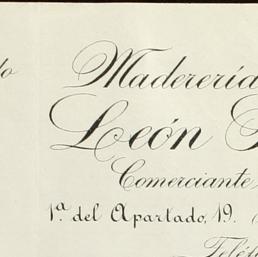 Maderería
León
Comerciante
1ª. del Apartado, 19.